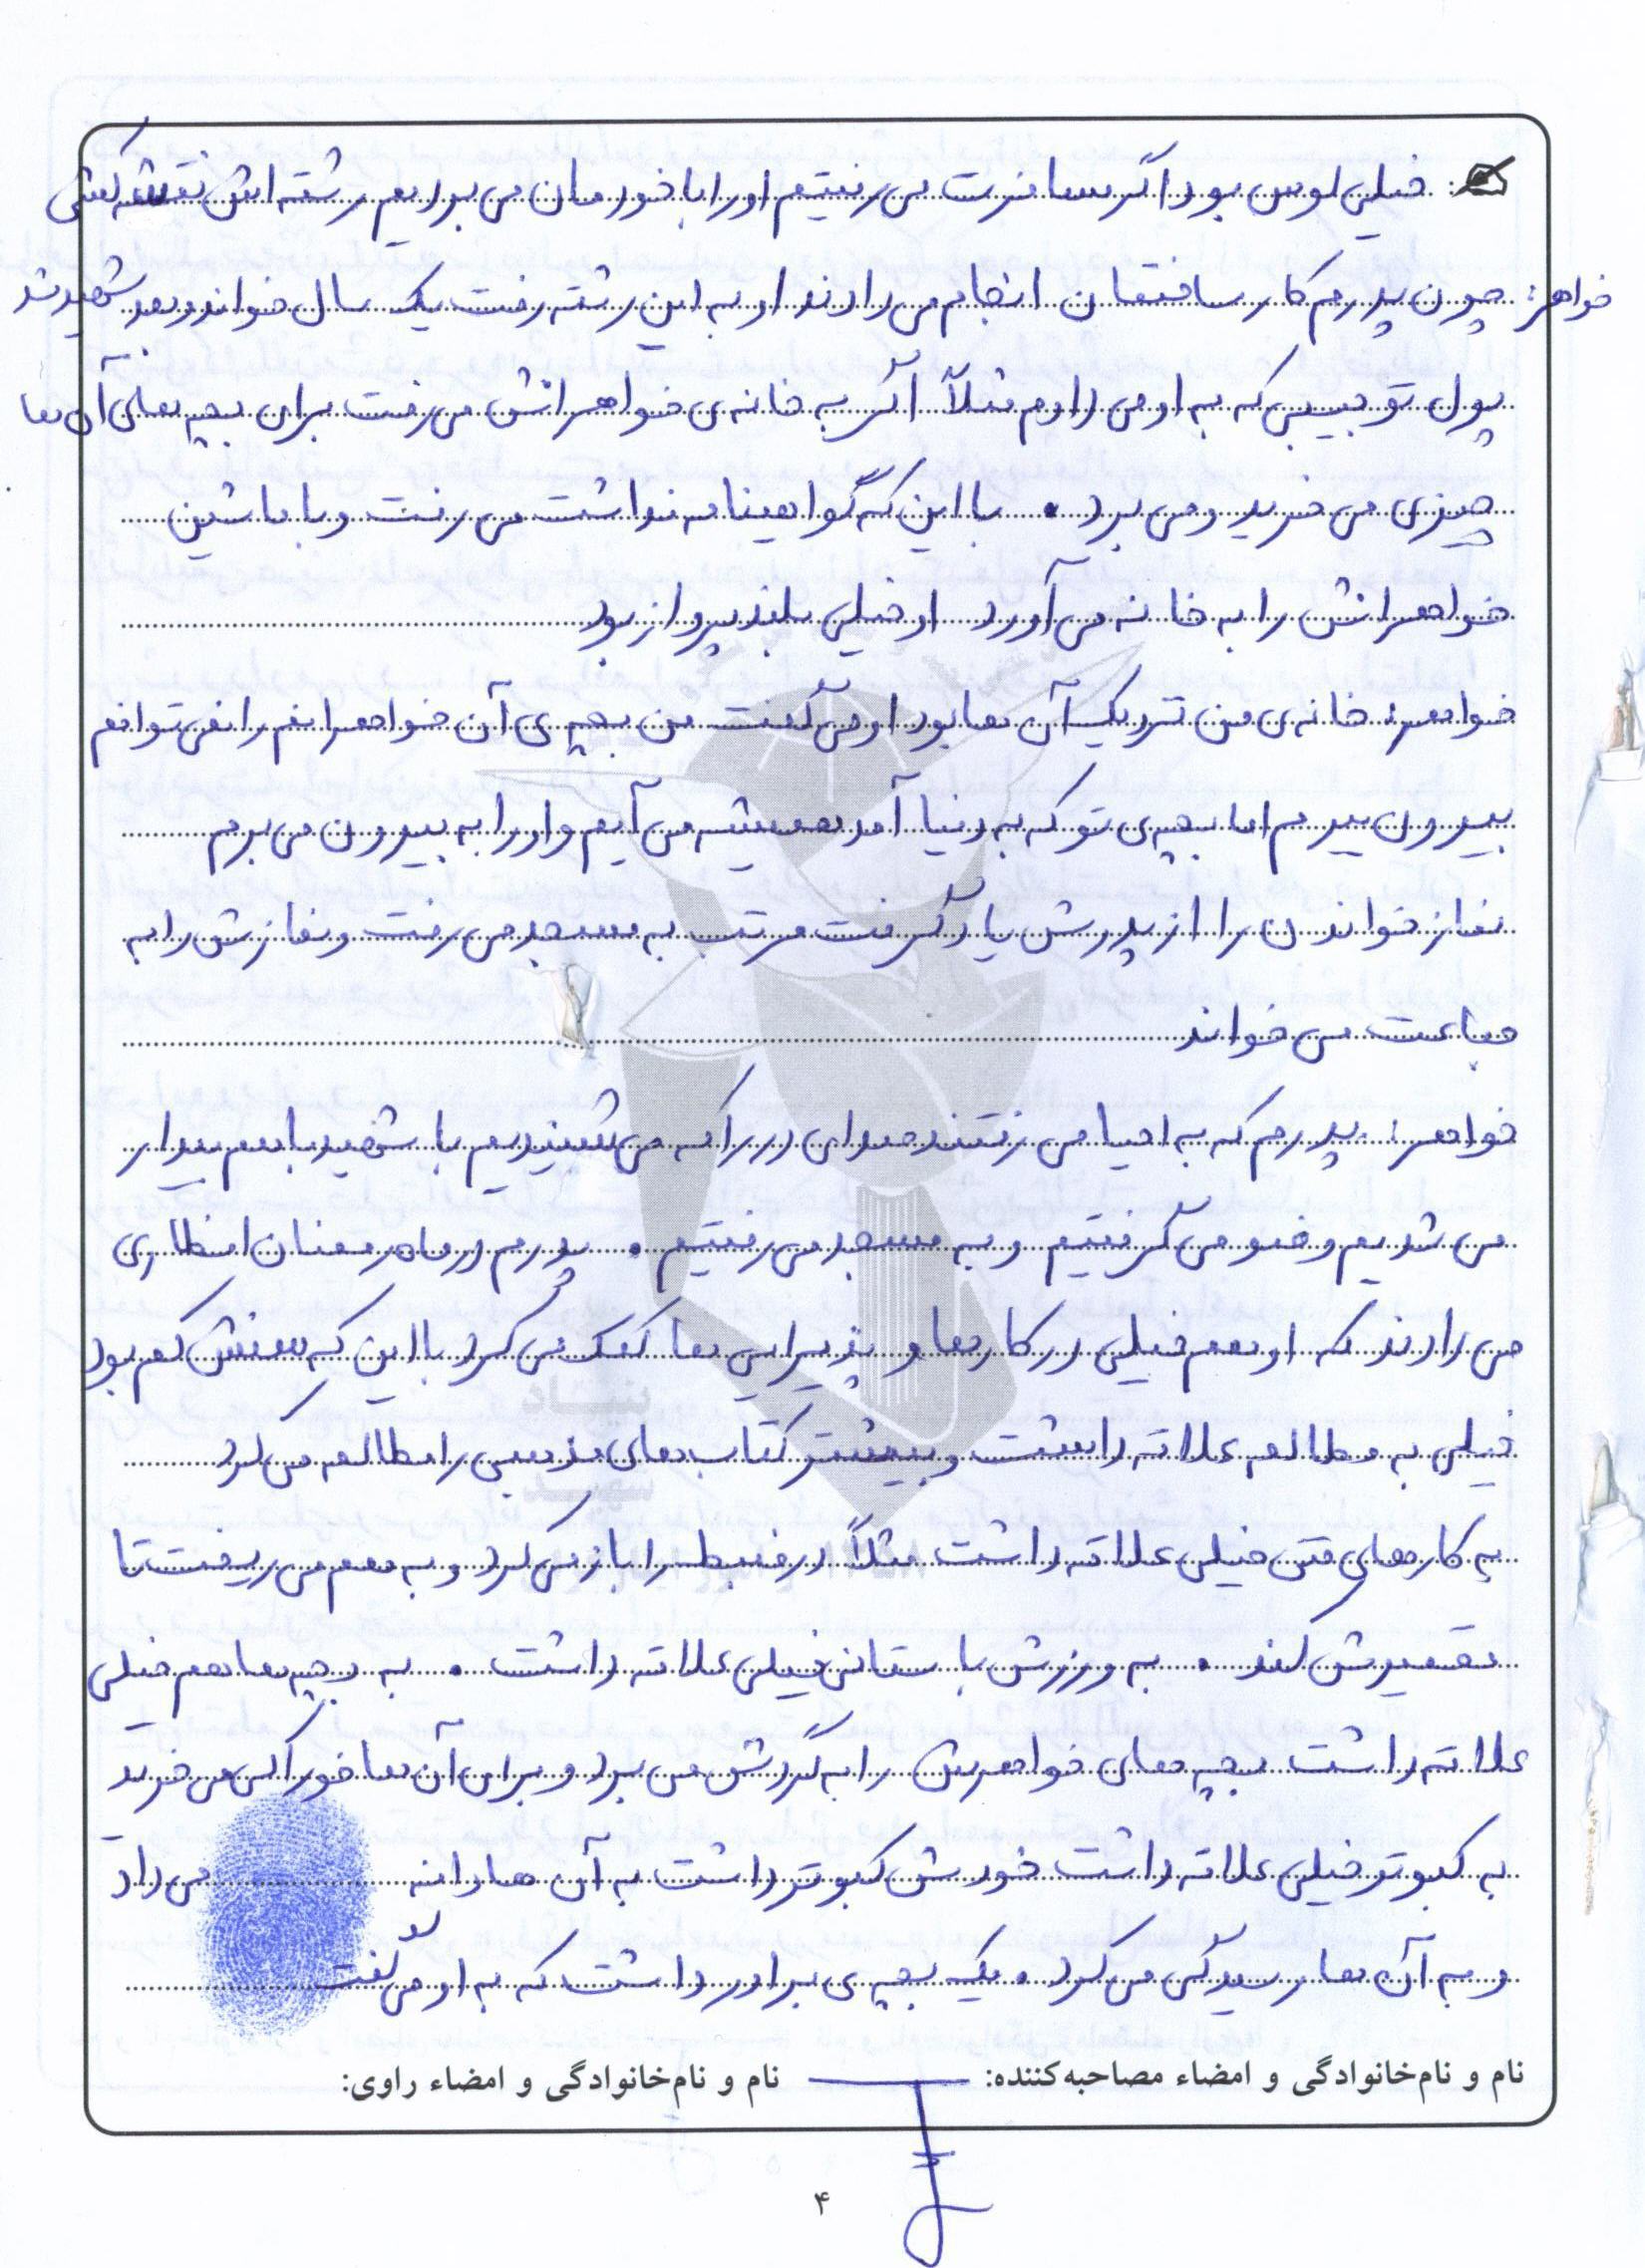 خیلی لوس بود اگر مسافرت می رفتیم او را با خودمان می بردیم رشته اش نقشه کشی
خواهر: چون پدرم کار ساختمان انجام می دادند او به این رشته رفت یک سال خواند و بعد شهید شد
پول تو جیبی که به او می دادم مثلاً اگر به خانه ی خواهرانش می رفت برای بچه های آن ها
چیزی می خرید و می برد . با این که گواهینامه نداشت می رفت و با ماشین
خواهرانش را به خانه می آورد او خیلی بلند پرواز بود
خواهر: خانه ی من نزدیک آن ها بود او می گفت من بچه ی آن خواهرانم را نمی توانم
بیرون ببرم اما بچه ی تو که به دنیا آمد همیشه می آیم و او را به بیرون می برم
نماز خواندن را از پدرش یاد گرفت مرتب به مسجد می رفت و نمازش را به
جماعت می خواند
خواهر: پدرم که به احیا می رفتند صدای در را که می شنیدیم با شهید باهم بیدار
می شدیم وضو می گرفتیم و به مسجد می رفتیم . پدرم در ماه رمضان افطاری
می دادند که او هم خیلی در کارها و پذیرایی ها کمک می کرد با این که سنش کم بود
خیلی به مطالعه علاقه داشت و بیشتر کتاب های مذهبی را مطالعه می کرد
به کارهای فنی خیلی علاقه داشت مثلاً در ضبط را باز می کرد و به هم می ریخت تا
تعمیرش کند . به ورزش باستانی خیلی علاقه داشت . به بچه ها هم خیلی
علاقه داشت بچه های خواهرش را به گردش می برد و برای آن ها خوراکی می خرید
به کبوتر خیلی علاقه داشت خودش کبوتر داشت به آن ها دانه می داد
و به آن ها رسیدگی می کرد . یک بچه ی برادر داشت که به او می گفت
نام و نام‌خانوادگی و امضاء مصاحبه‌کننده: نام و نام‌خانوادگی و امضاء راوی:
۴